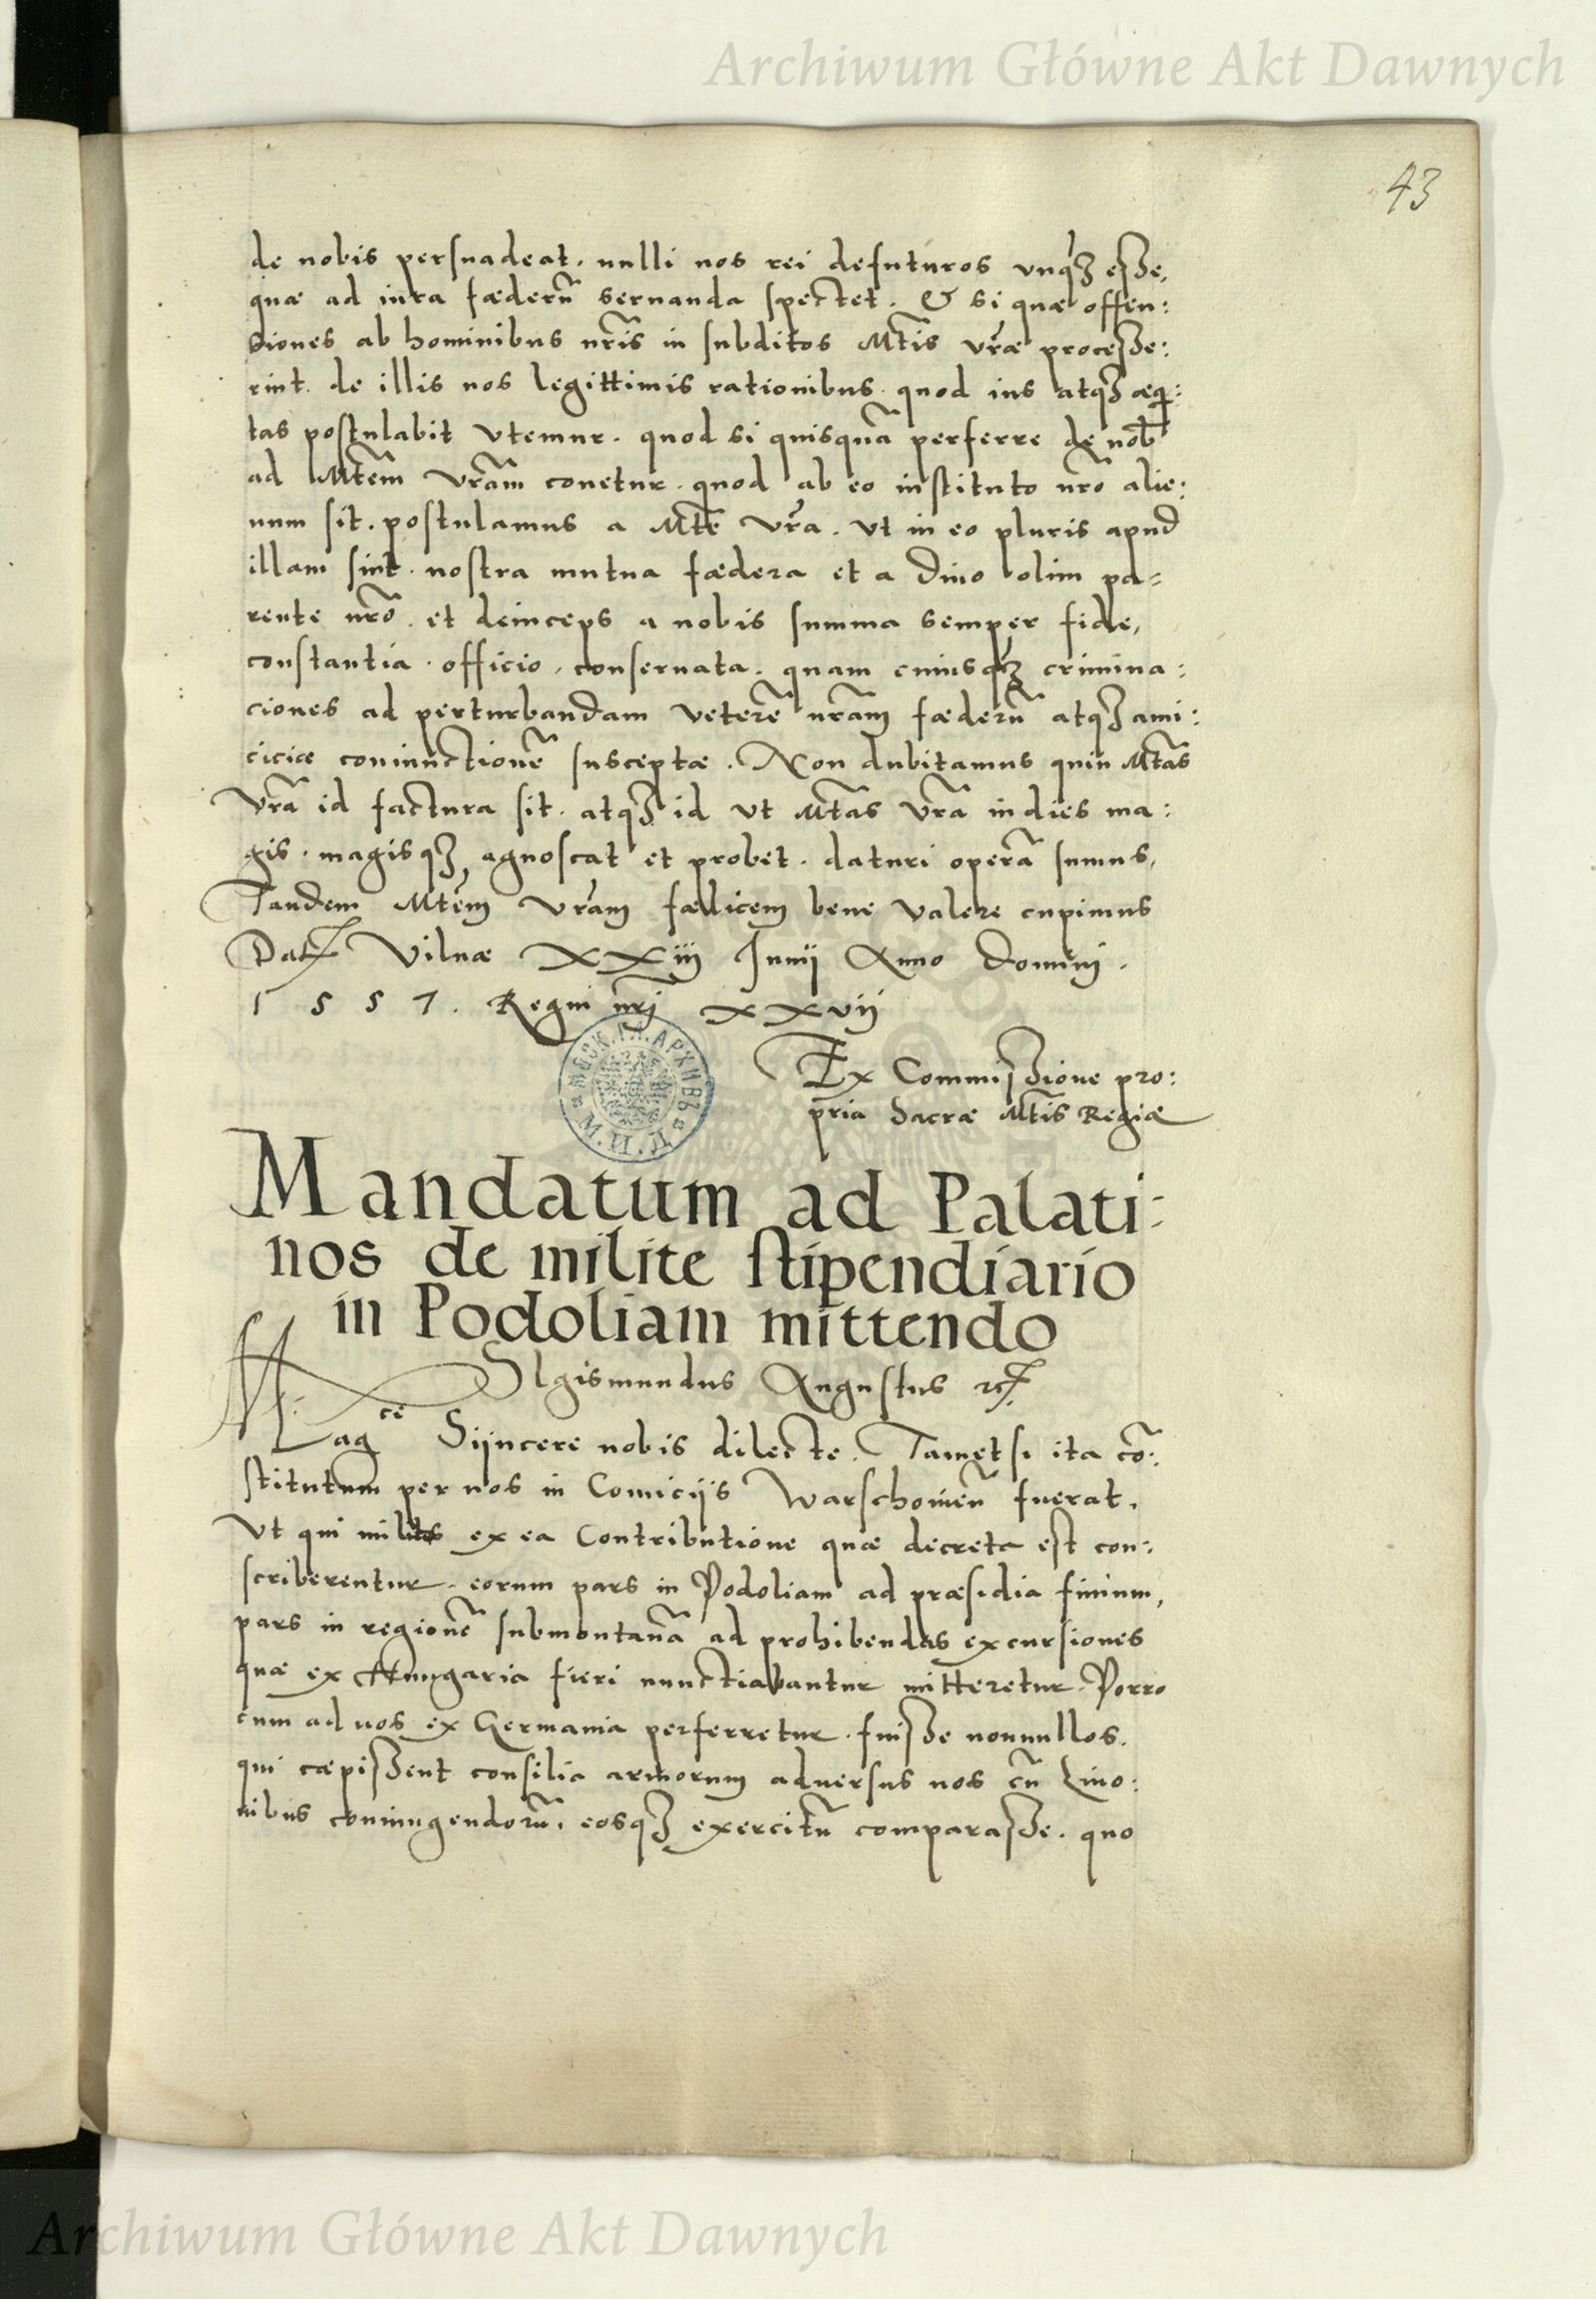 Archiwum Główne Akt Dawnych
43
de nobis persuadeat. nulli nos rei defuturos vnqȝ esse,
quæ ad iura fæderū seruanda spectet. & si quæ offen:
siones ab hominibus nr̃is in subditos Mt̃is vr̃æ processe:
rint. de illis nos legittimis rationibus. quod ius atqȝ æqi:
tas postulabit vtemur. quod si quisquā perferre de nob̃
ad Mtẽm vr̃am conetur. quod ab eo instituto nr̃o alie:
num sit. postulamus a Mtẽ vr̃a. vt in eo pluris apud
illam sint. nostra mutua fædera et a Diuo olim pa=
rente nr̃o. et deinceps a nobis summa semper fide,
constantia. officio, conseruata. quam cuiusqȝ crimina:
ciones ad perturbandam veterē nr̃am fæderū atqȝ ami:
ciciæ coniunctionē susceptæ. Non dubitamus quin Mt̃as
Vr̃a id factura sit. atqȝ id vt Mt̃as vr̃a in dies ma:
gis. magisqȝ agnoscat et probet. daturi operā sumus,
Tandem Mtẽm vr̃am fælicem bene valere cupimus
Dat Vilnæ XXiij Junij Anno Domini.
1 5 5 7. Regni nr̃j xxvij
Ex Commissione pro:
pria Sacræ Mt̃is Regiæ
МОСК. ГЛ. АРХИВЪ М. И. Д.
Mandatum ad Palati:
nos de milite stipendiario
in Podoliam mittendo
SIgismundus Augustus
Magce Sijncere nobis dilecte. Tametsi ita cō:
stitutum per nos in Comicijs Warschouieñ fuerat,
Vt qui milites ex ea Contributione quæ decreta est con:
scriberentur. eorum pars in Podoliam ad præsidia finium,
pars in regionē submontanā ad prohibendas excursiones
quæ ex Hungaria fieri nunctiabantur mitteretur. Porro
cum ad nos ex Germania perferretur. fuisse nonnullos.
qui cæpissent consilia armorum aduersus nos cū Liuo:
nibus coniungendorū. eosqȝ exercitū comparasse. quo
Archiwum Główne Akt Dawnych